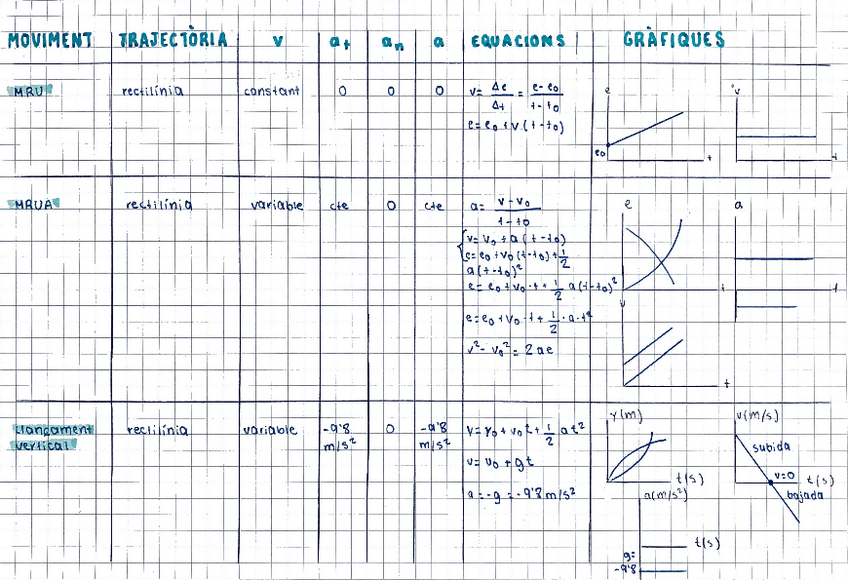 MOVIMENT TRAJECTÒRIA v at an a EQUACIONS GRÀFIQUES
MRU rectilínia constant 0 0 0
v= Δe/Δt = e-e₀/t-t₀
e=e₀+v(t-t₀)
e
e₀
t
v
t
MRUA rectilínia variable cte 0 cte
a= v-v₀/t-t₀
v=v₀+a(t-t₀)
e=e₀+v₀(t-t₀)+1/2
a(t-t₀)²
e=e₀+v₀·t+1/2 a(t-t₀)²
e=e₀+v₀·t+1/2·a·t²
v²-v₀²=2ae
e
t
a
t
v
t
Llançament
vertical
rectilínia variable -9'8
m/s²
0
-9'8
m/s²
y=y₀+v₀t+1/2 at²
v=v₀+gt
a=-g=-9'8m/s²
y(m)
t(s)
v(m/s)
subida
v=0
t(s)
bajada
a(m/s²)
t(s)
g=
-9'8